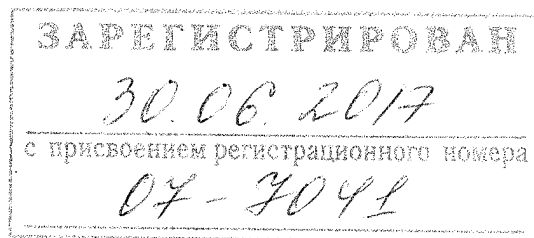 ЗАРЕГИСТРИРОВАН
30.06.2017
с присвоением регистрационного номера
07-7041